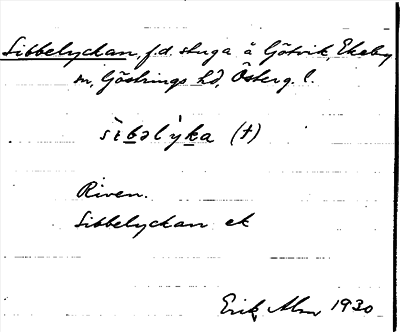 Sibbelyckan, f.d. stuga å Götvik, Ekeby
sn, Göstrings hd, Österg. l.
sìbəlỳka (†)
Riven.
Sibbelyckan ek
Erik Alm 1930